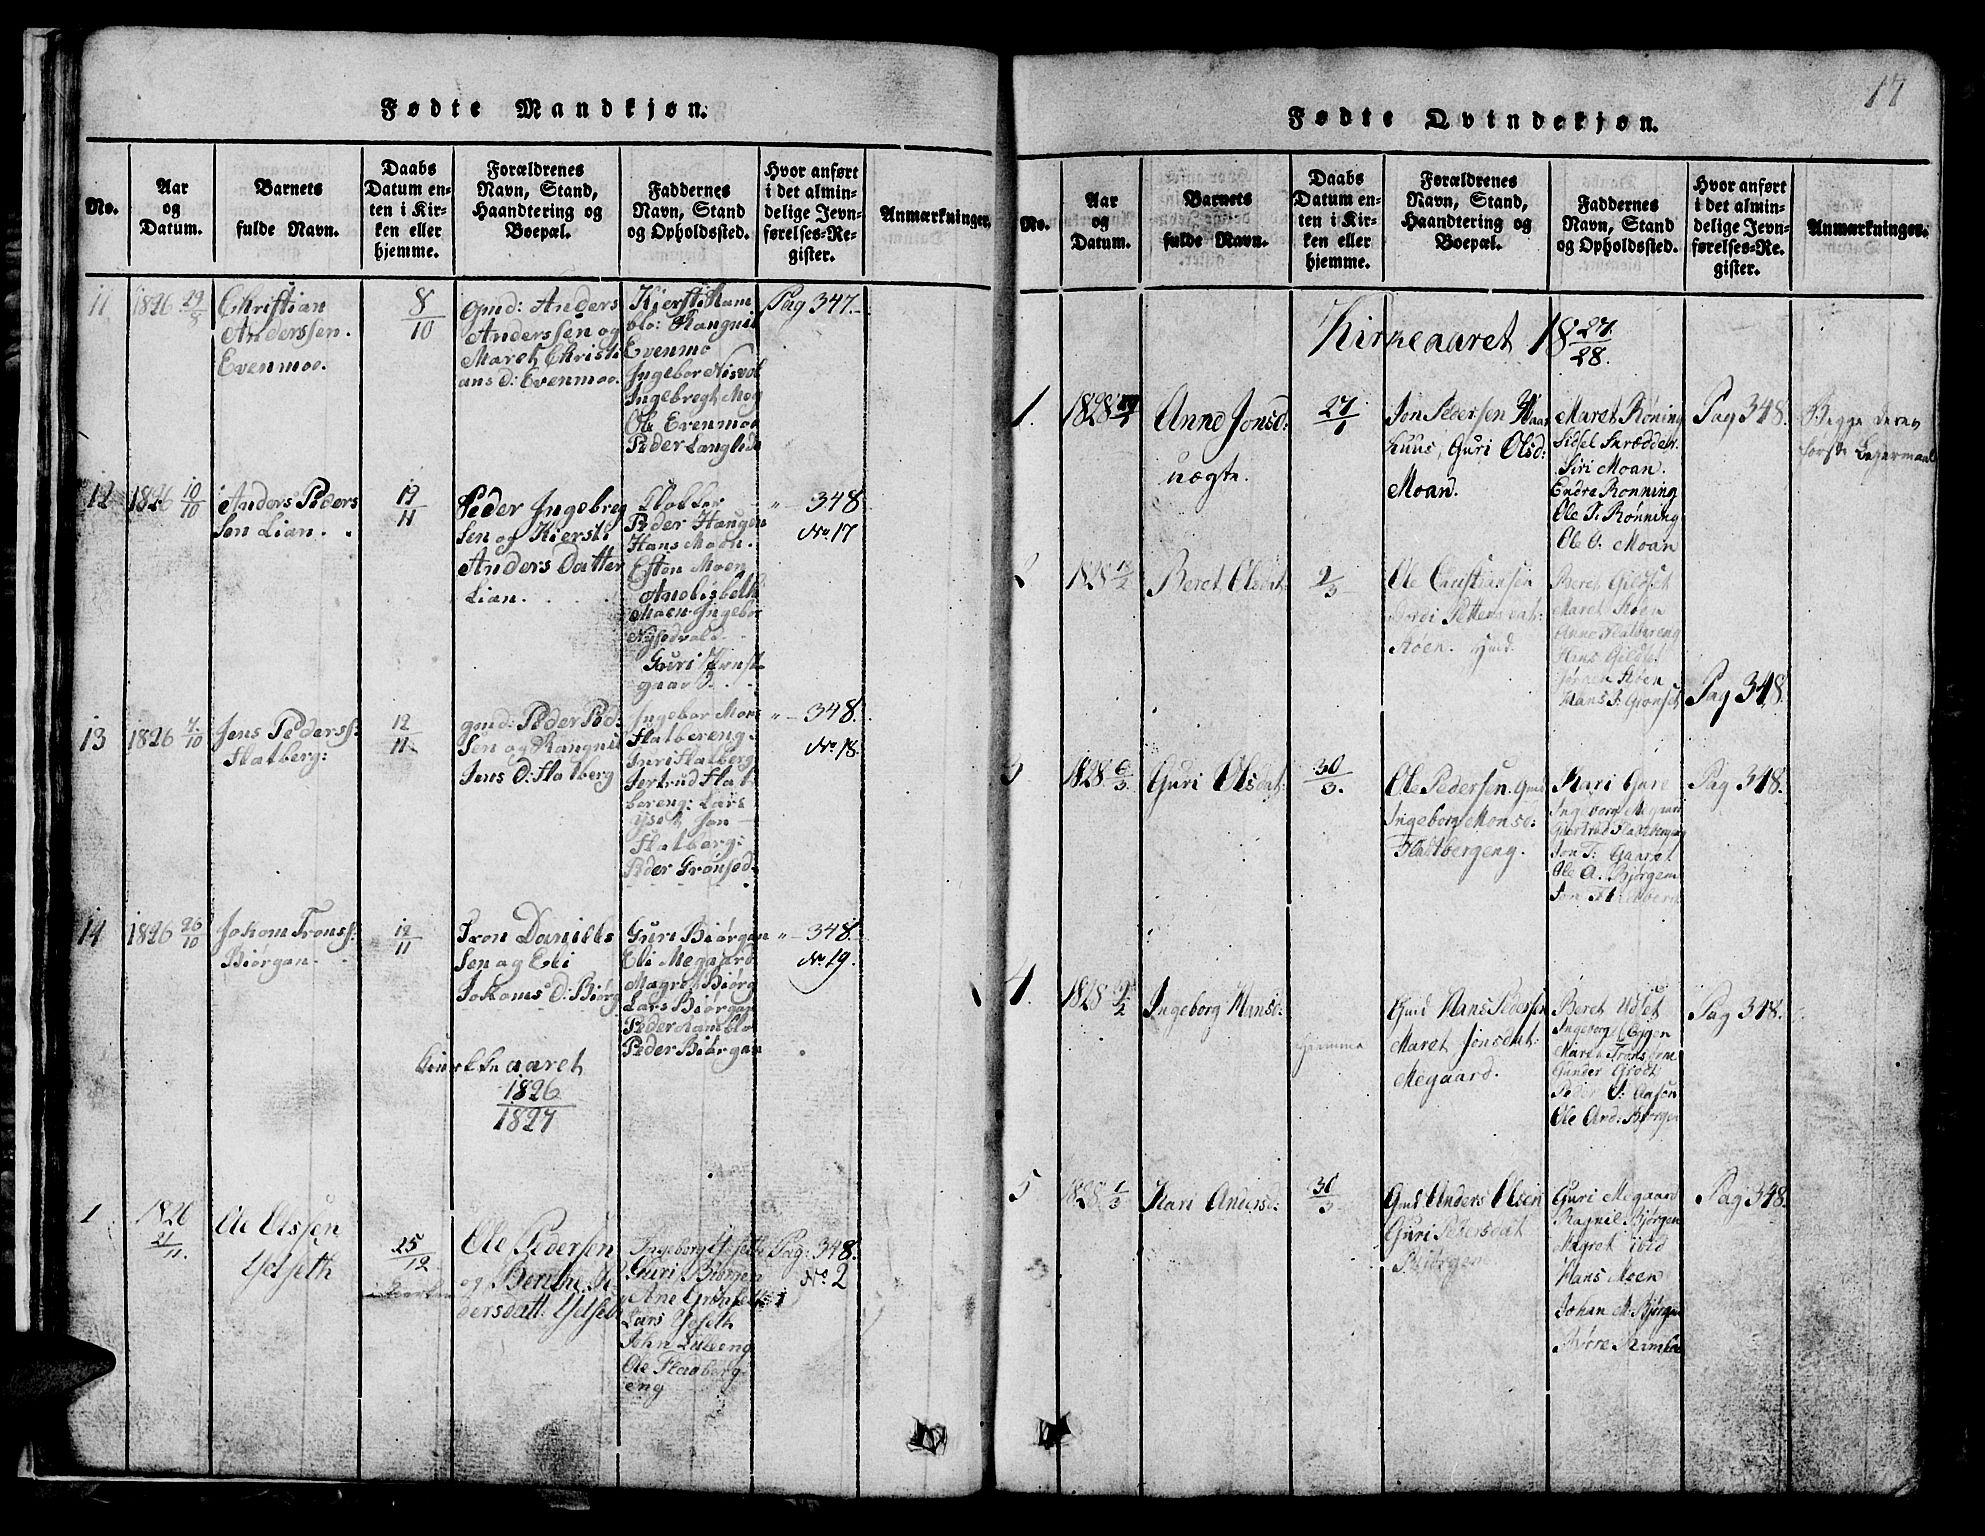 17
Fødte Mandkjøn.
No.
Aar
og
Datum.
Barnets
fulde Navn.
Daabs
Datum en-
ten i Kir-
ken eller
hjemme.
Forældrenes
Navn, Stand,
Haandtering og
Boepæl.
Faddernes
Navn, Stand
og Opholdssted.
Hvor anført
i det almin-
delige Jevn-
førelses-Re-
gister.
Anmærkninger.
11
1826 29/8
Christian
Anderssen.
Evenmoe.
8/10
gmd: Anders
Anderssen og
Maret Christi
ans d: Evenmoe.
Kjersti Ram
blo: Rangnil
Evenmo
Ingebor Nisvol
Ingebregt Mog
Ole Evenmoe
Peder Langlid
Pag 347.
12
1826 10/10
Anders Peders
Sen Lian.
19/11
Peder Ingebreg
Sen og Kiersti
Anders Datter
Lian.
Klokker
Peder Haugen
Hans Moen.
Esten Moen
Anelisbeth
Moen Ingebor
Nysedvald
Guri
gaard
" 348
No. 17
13
1826 4/10
Jens Pederss:
Flatberg:
12/11
gmd: Peder Ped:
Sen og Rangnil
Jens d: Flatberg
Ingebor Mons
Flatbereng.
Guri Flatberg
Jertrud Flat
bereng: Lars
Yset Jon
Flatberg:
Peder Grønsed
" 348.
No. 18.
14
1826 26/10
Johan Tronss:
Biørgan.
12/11
Tron Daniels
Sen og Eli
Johans d: Biørg
Guri Biørgan
Eli Megaard
Magret Biørg
Lars Biørgan
Peder Ramblo
Peder Biørgan
" 348.
No. 19.
aaret
1826
1827
1
1826
21/11.
Ole Olssen
Yelseth
25/12
Ole Pedersen
og Berethe Pe
dersdatt: Yelset
Ingeborg Yelseth
Guri Biørgen
Ane Grønseth
Lars Yelseth
John Lilleeng
Ole Fladberg-
eng
Pag: 348.
No 2
Fødte Qvindekjøn.
No.
Aar
og
Datum.
Barnets
fulde Navn.
Daabs
Datum en-
ten i Kir-
ken eller
hjemme.
Forældrenes
Navn, Stand,
Haandtering og
Boepæl.
Faddernes
Navn, Stand
og Opholdssted.
Hvor anført
i det almin-
delige Jevn-
førelses-Re-
gister.
Anmærkninger.
Kirkeaaret 18 27/28.
1.
1828
Anne Jonsd:
uægte.
27/1
Jon Pedersen Aas
huus, Guri Olsd:
Moan.
Maret Røning
Sidsel Skrædder
Siri Moan.
Endre Rønning
Ole J. Rønning
Ole O. Moan
Pag 348.
Begge deres
første Leiermaal
2
1828
Beret Olsdat:
2/3
Ole Christiansen
Pettersdat:
Støen. Gmd.
Beret Gildset
Maret Støen
Anne Flatbereng
Gildset
Jørgen Støen
Hans J: Grønset
Pag 348.
3
1828 6/3
Guri Olsdat:
30/3.
Ole Pedersen. Gmd
Ingeborg Monsd:
Fladtbergeng.
Kari Gure
Ingeborg Megaard
Giertrud Fladtbergeng
Jon T: Gaaret
Ole A. Bjørgen
Jon Fladtberg
Pag 348.
4.
1828
Ingeborg Hansd:
hjemme
Gmd Hans Pedersen
Maret Jonsdat:
Megaard.
Beret Udset
Ingeborg Eggen
Maret
Gunder Grodt
Peder O: Aasen
Ole And: Bjørgen
Pag 348.
5
1828 1/3
Kari Andersd:
30/3
Gmd Anders Olsen
Guri Petersdat
Bjørgen
Guri Megaard
Ragnil Bjørgen
Magret ibid
Hans Moen
Johan M. Bjørgen
Tore Ramblo
Pag 348.